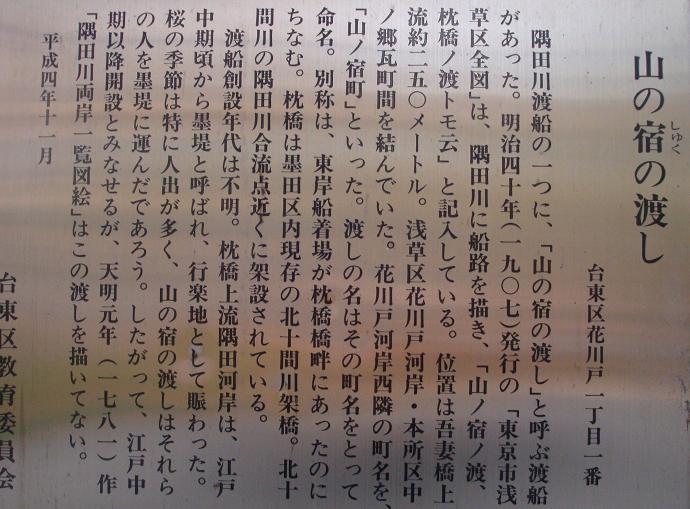 山の宿の渡し
しゅく
台東区花川戸一丁目一番
隅田川渡船の一つに、「山の宿の渡し」と呼ぶ渡船
があった。明治四十年(一九〇七)発行の「東京市浅
草区全図」は、隅田川に船路を描き、「山ノ宿ノ渡、
枕橋ノ渡トモ云」と記入している。位置は吾妻橋上
流約二五〇メートル。浅草区花川戸河岸・本所区中
ノ郷瓦町間を結んでいた。花川戸河岸西隣の町名を、
「山ノ宿町」といった。渡しの名はその町名をとって
命名。別称は、東岸船着場が枕橋橋畔にあったのに
ちなむ。枕橋は墨田区内現存の北十間川架橋。北十
間川の隅田川合流点近くに架設されている。
渡船創設年代は不明。枕橋上流隅田河岸は、江戸
中期頃から墨堤と呼ばれ、行楽地として賑わった。
桜の季節は特に人出が多く、山の宿の渡しはそれら
の人を墨堤に運んだであろう。したがって、江戸中
期以降開設とみなせるが、天明元年(一七八一)作
「隅田川両岸一覧図絵」はこの渡しを描いてない。
平成四年十一月
台東区教育委員会